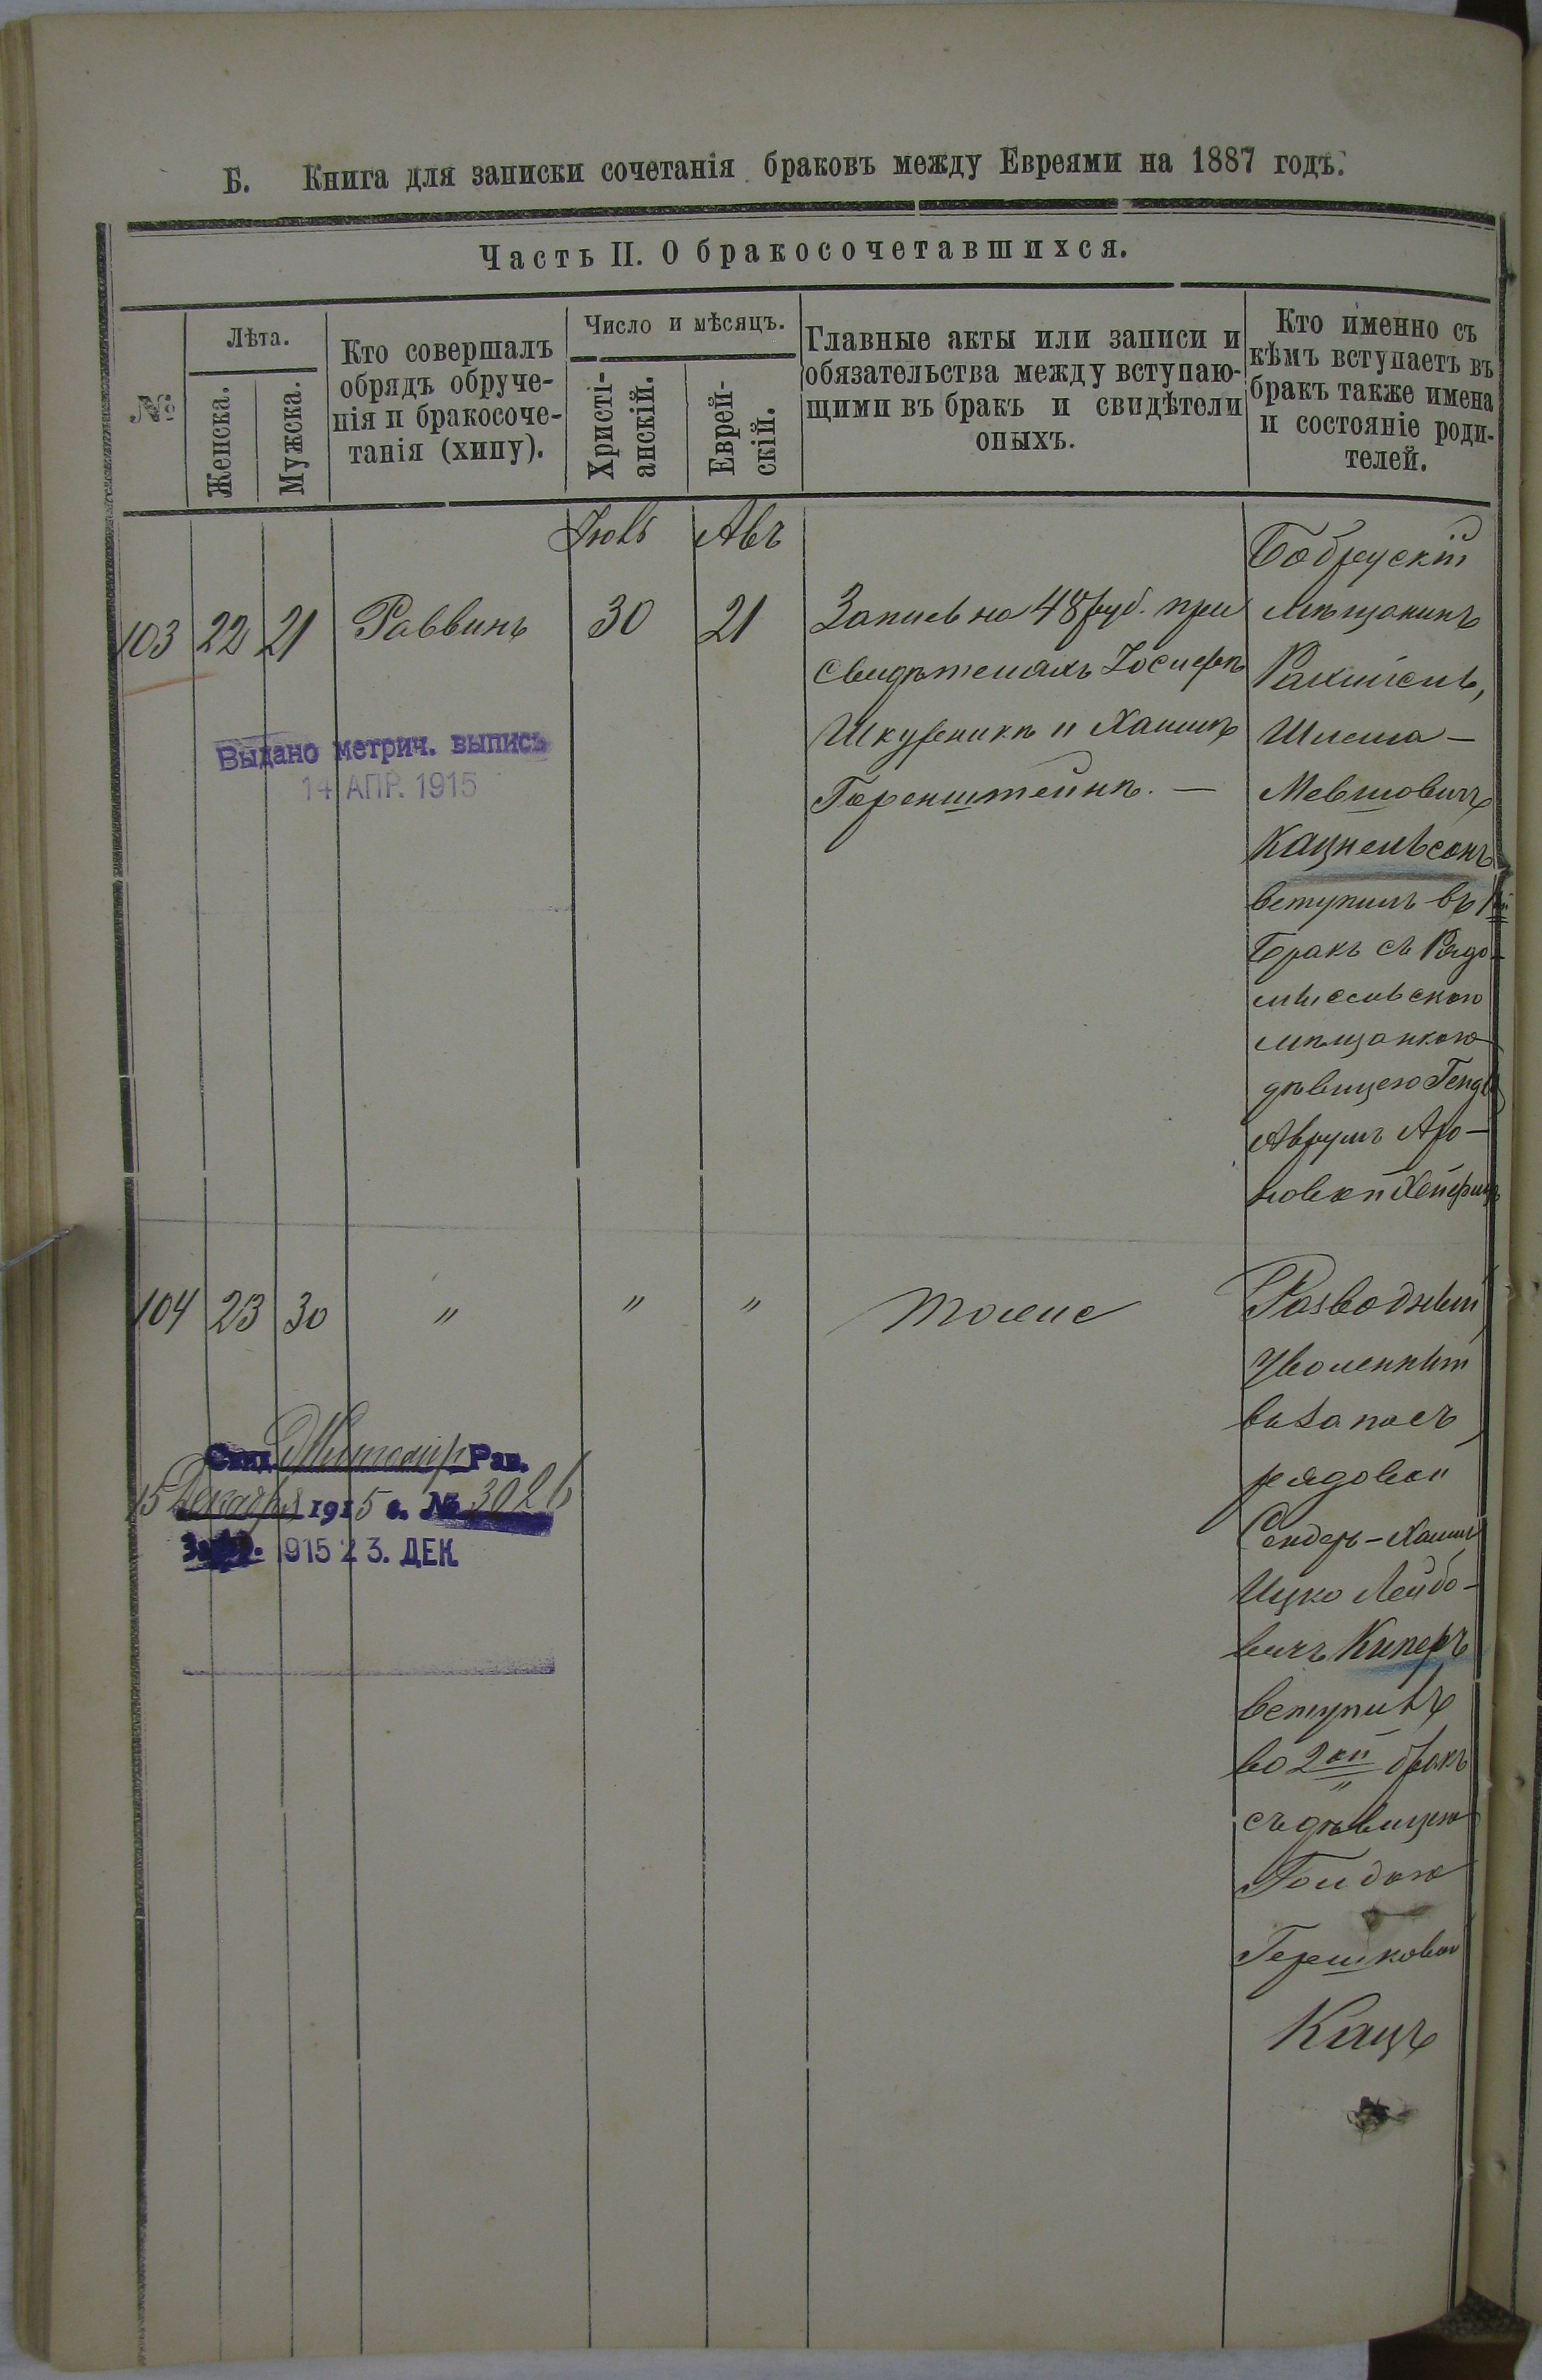 Б. Книга для записки сочетанія браковъ между Евреями на 1887 годъ.
Часть II. О бракосочетавшихся.
№
Лѣта.
Женска.
Мужска.
Кто совершалъ
обрядъ обруче-
нія и бракосоче-
танія (хипу).
Число и мѣсяцъ.
Христі-
анскій.
Еврей-
скій.
Главные акты или записи и
обязательства между вступаю-
щими въ бракъ и свидѣтели
оныхъ.
Кто именно съ
кѣмъ вступаетъ въ
бракъ также имена
и состояніе роди-
телей.
Іюль Авъ
103 22 21 Раввинъ 30 21
Запись на 48 руб. при
свидѣтеляхъ Іосифѣ
Шкурникѣ и Хаимѣ
Горенштейнѣ. —
Бобрускій
мѣщанинъ
Шлема —
Мевшовичъ
Кацнельсонъ
вступилъ въ 1й
бракъ съ Радо-
мысльскою
мѣщанкою
дѣвицею
Аврумъ Аро-
новой
Выдано метрич. выпись
14 АПР. 1915
104 23 30 " " " тоже
Разводный
Уволенный
въ запасъ
рядовой
Сендеръ-Хаимъ
Ицко Лейбо-
вичъ Киперъ
вступилъ
во 2ой бракъ
съ дѣвицею
Голдою
Гершковой
Кацъ
Свид. Житомир. Рав.
15 Декабря 1915 г. № 3026
1915 23. ДЕК